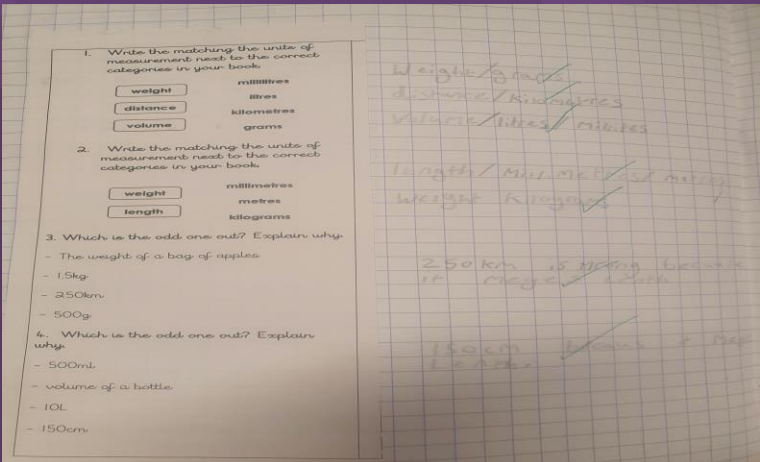 1. Write the matching the units of
measurement next to the correct
categories in your book.
weight
distance
volume
millilitres
litres
kilometres
grams
2. Write the matching the units of
measurement next to the correct
categories in your book.
weight
length
millimetres
metres
kilograms
3. Which is the odd one out? Explain why.
- The weight of a bag of apples
- 1.5kg
- 250km
- 500g
4. Which is the odd one out? Explain
why.
- 500ml
- volume of a bottle
- 10L
- 150cm
Weight/grams
distance/Kilometres
Volume/litres/
length/
Weight Kilograms
250km is because
it
150cm